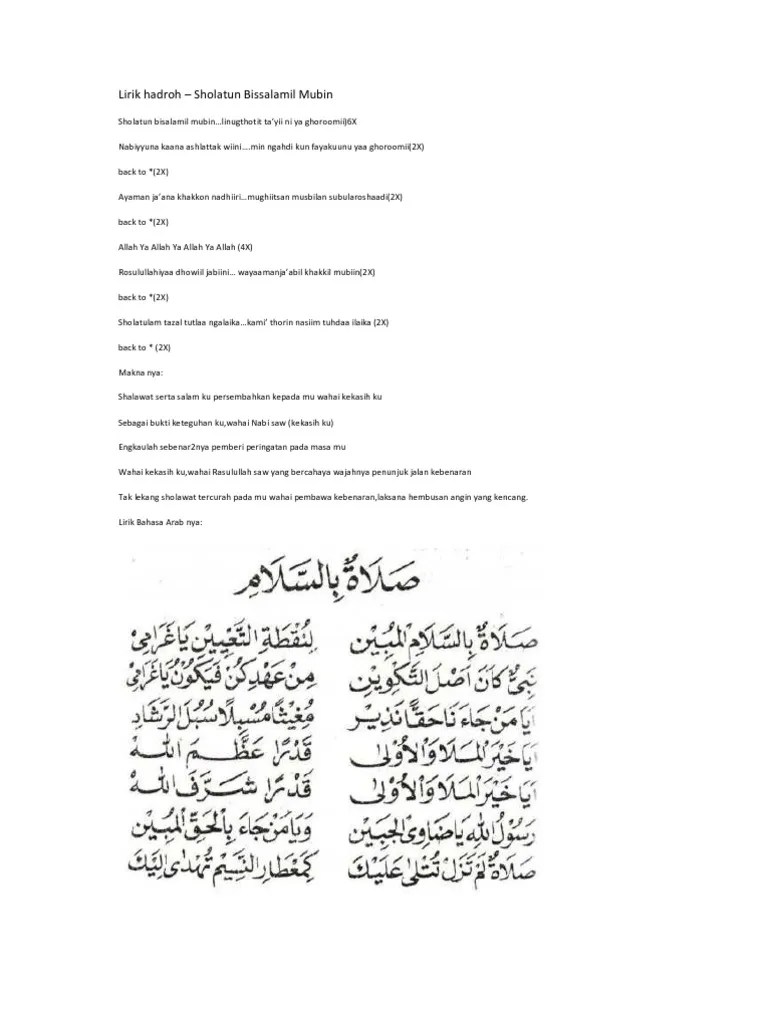 Lirik hadroh – Sholatun Bissalamil Mubin
Sholatun bisalamil mubin…linugthotit ta'yii ni ya ghoroomii)6X
Nabiyyuna kaana ashlattak wiini….min ngahdi kun fayakuunu yaa ghoroomii(2X)
back to *(2X)
Ayaman ja'ana khakkon nadhiiri…mughiitsan musbilan subularoshaadi(2X)
back to *(2X)
Allah Ya Allah Ya Allah Ya Allah (4X)
Rosulullahiyaa dhowiil jabiini… wayaamanja'abil khakkil mubiin(2X)
back to *(2X)
Sholatulam tazal tutlaa ngalaika…kami' thorin nasiim tuhdaa ilaika (2X)
back to * (2X)
Makna nya:
Shalawat serta salam ku persembahkan kepada mu wahai kekasih ku
Sebagai bukti keteguhan ku,wahai Nabi saw (kekasih ku)
Engkaulah sebenar2nya pemberi peringatan pada masa mu
Wahai kekasih ku,wahai Rasulullah saw yang bercahaya wajahnya penunjuk jalan kebenaran
Tak lekang sholawat tercurah pada mu wahai pembawa kebenaran,laksana hembusan angin yang kencang.
Lirik Bahasa Arab nya:
صَلَاةٌ بِالسَّلَامِ
صَلَاةٌ بِالسَّلَامِ الْمُبِيْنِ لِنُقْطَةِ التَّعْيِيْنِ يَاغَرَامِيْ
نَبِيٌّ كَانَ اَصْلَ التَّكْوِيْنِ مِنْ عَهْدِ كُنْ فَيَكُوْنُ يَاغَرَامِيْ
اَيَا مَنْ جَاءَ نَا حَقًّا نَذِيْر مُغِيْثًا مُسْبِلًا سُبُلَ الرَّشَادِ
اَيَا خَيْرَ الْمَلَا وَالْأُوْلٰى قَدْرًا عَظَّمَ اللّٰهْ
اَيَا خَيْرَ الْمَلَا وَالْأُوْلٰى قَدْرًا شَرَّفَ اللّٰهْ
رَسُوْلُ اللهِ يَاضَاوِى الْجَبِيْنِ وَيَامَنْ جَاءَ بِالْحَقِّ الْمُبِيْنِ
صَلَاةٌ لَمْ تَزَلْ تُتْلٰى عَلَيْكَ كَمِعْطَارِ النَّسِيْمِ تُهْدٰى اِلَيْكَ